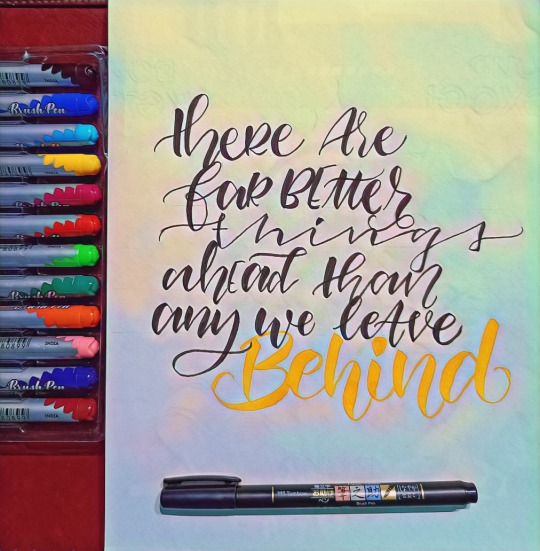 there Are
faR BEtteR
things
ahEad than
any we leAve
Behind
Brush Pen
INDIA
INDIA
Brush Pen
INDIA
Tombow
Brush Pen